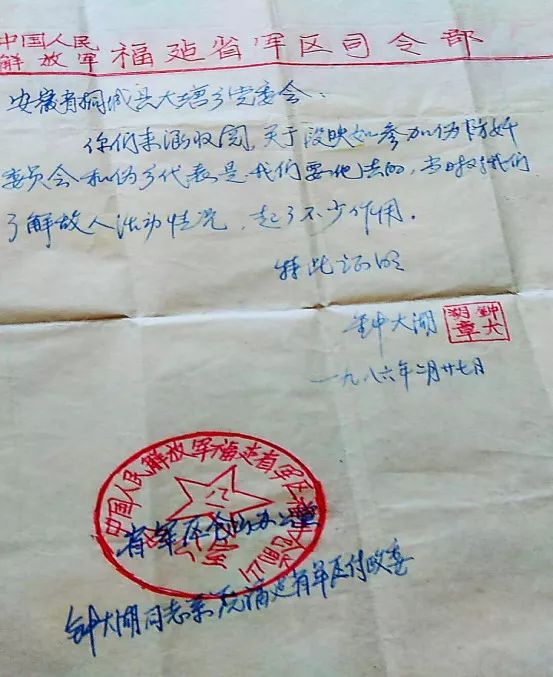 中国人民
解放军 福建省军区司令部
安徽省桐城县大塘乡党委会：
你们来函收阅，关于段映如参加伪防奸
委员会和伪乡代表是我们要他去的，当时对我们
了解敌人活动情况，起了不少作用。
特此证明
钟大湖
钟大湖章
一九八六年二月廿七日
中国人民解放军福建省军区
八一
省军区仓山办公室
钟大湖同志系原福建省军区付政委